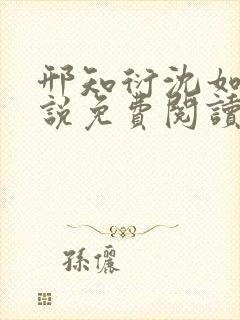 邢知衍沈如
說免費閱讀
孫儷